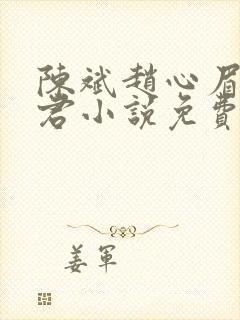 陳斌趙心眉
君小説免費
姜軍